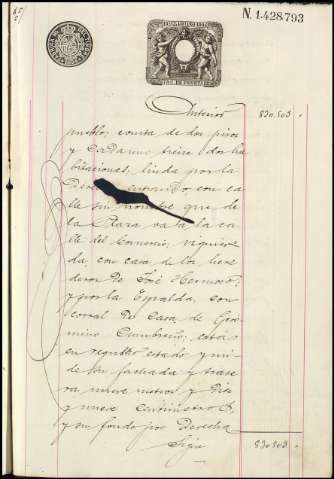 N. 1.428.793
Anterior 830.503
pueblo, consta de dos pisos
y cada uno tiene dos ha
bitaciones, linda por la
con ca
lle sin nombre que de
la Plaza va a la ca
lle del Comercio, izquier
da con casa de los here
deros de José Hermoso,
y por la Espalda, con
corral de Casa de
están
en regular estado y mi
de su fachada y trase
ra nueve metros y diez
y nueve centimetros,
y su fondo por derecha
Sigue 830.503